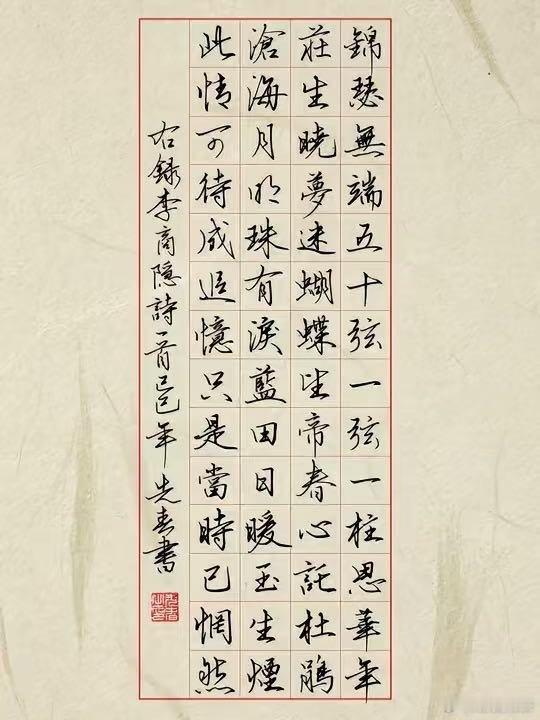 錦瑟無端五十弦一弦一柱思華年
莊生曉夢迷蝴蝶望帝春心託杜鵑
滄海月明珠有淚藍田日暖玉生煙
此情可待成追憶只是當時已惘然
右錄李商隱詩一首巳年先書